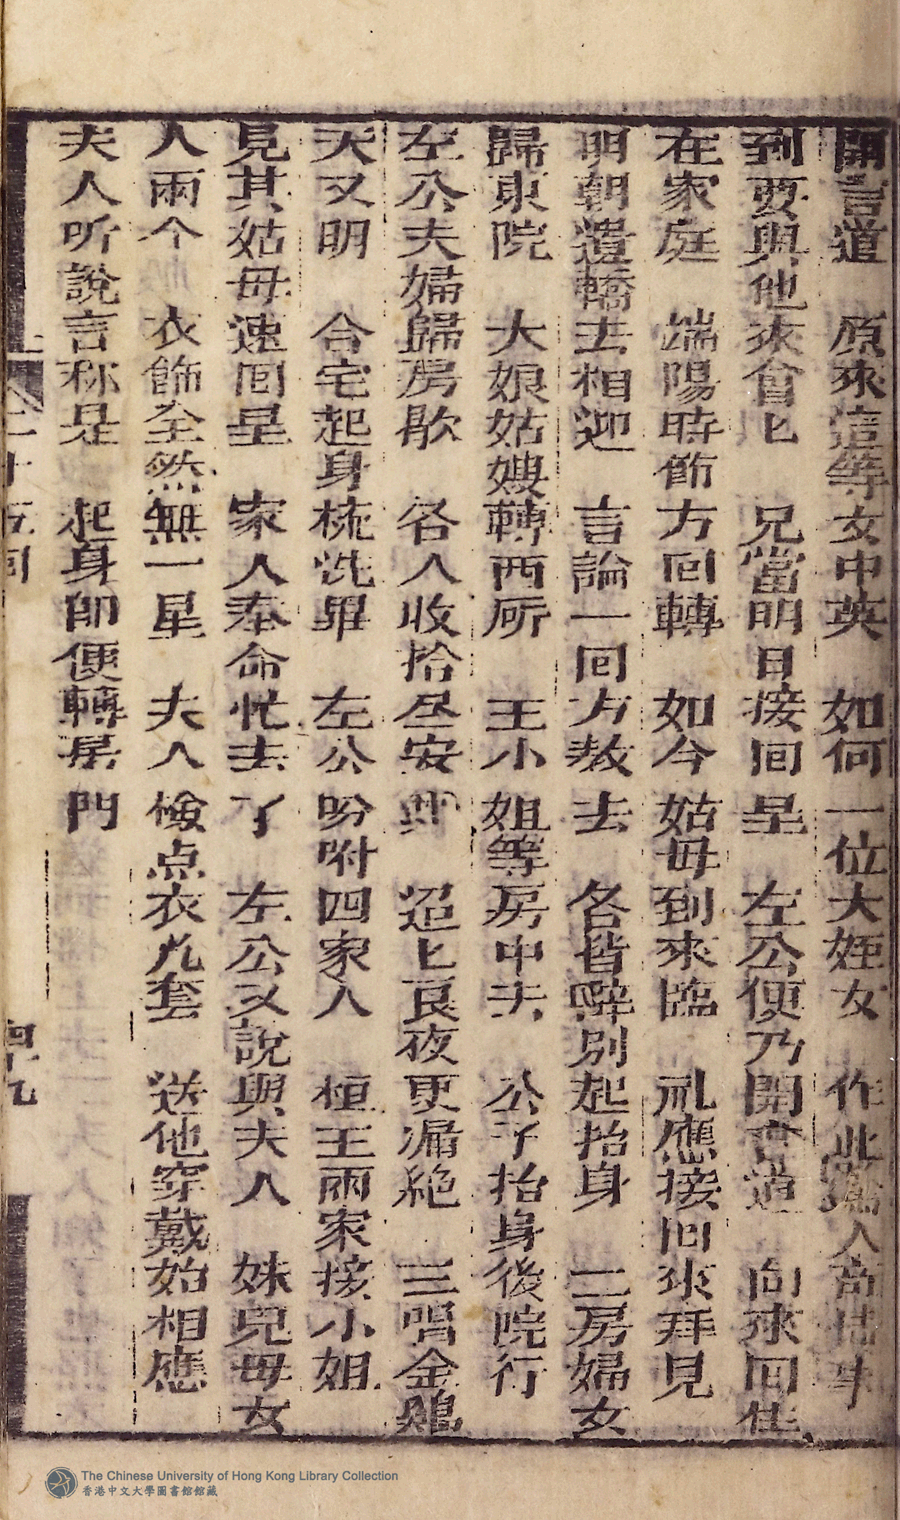 開言道　原來這等女中英　如何一位大姪女　作此為人
到要與他來會匕　兄當明日接回呈　左公便乃開言道　向來回住
在家庭　端陽時節方回轉　如今姑母到來臨　礼應接回來拜見
明朝遣轎去相迎　言論一回方教去　各皆辭別起抬身　二房婦女
歸東院　大娘姑嫂轉西所　王小姐等房中去　公子抬身後院行
左公夫婦歸房歇　各人收拾尽安　迢匕良夜更漏絶　三唱金鷄
天又明　合宅起身梳洗畢　左公吩咐四家人　桓王兩家接小姐
見其姑母速回呈　家人奉命忙去了　左公又說與夫人　妹兒母女
人兩个　衣飾全然無一星　夫人檢点衣九套　送他穿戴始相應
夫人听說言称是　起身即便轉房門
二十五回
四十九
The Chinese University of Hong Kong Library Collection
香港中文大學圖書館館藏